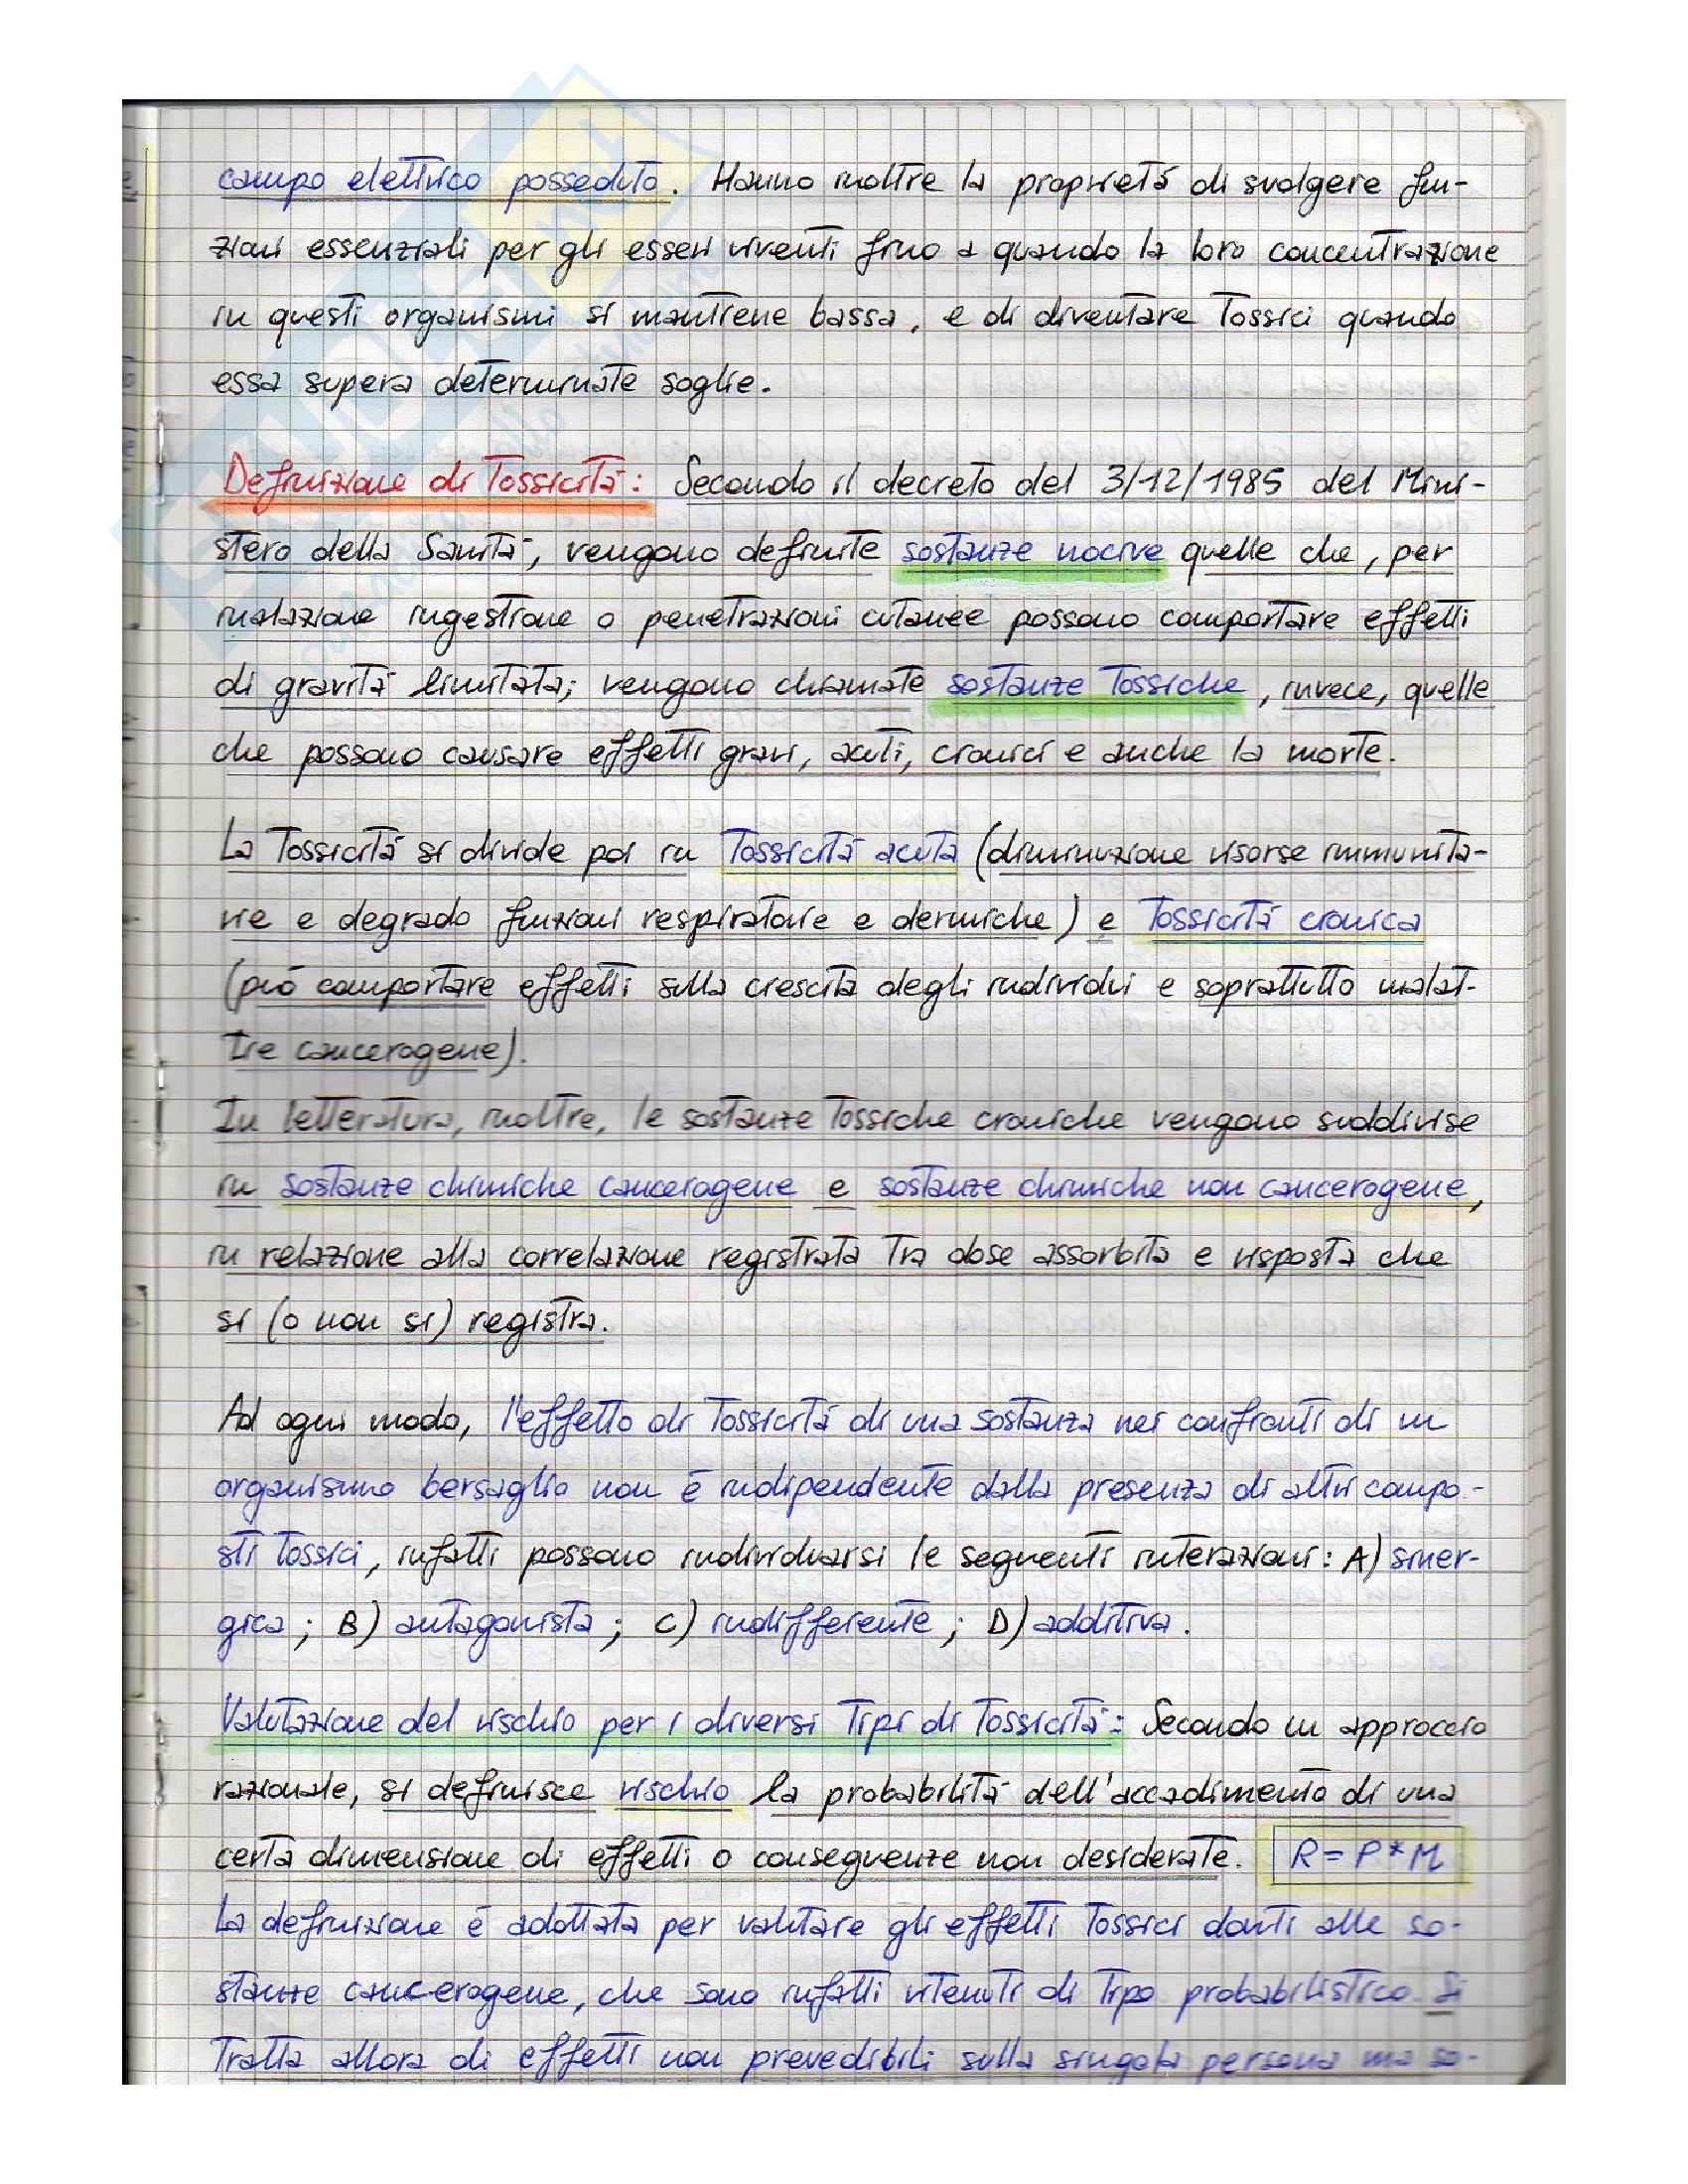 campo elettrico posseduto. Hanno inoltre la proprietà di svolgere fun-
zioni essenziali per gli esseri viventi fino a quando la loro concentrazione
in questi organismi si mantiene bassa, e di diventare tossici quando
essa supera determinate soglie.
Definizione di Tossicità: Secondo il decreto del 3/12/1985 del Mini-
stero della Sanità, vengono definite sostanze nocive quelle che, per
inalazione ingestione o penetrazioni cutanee possono comportare effetti
di gravità limitata; vengono chiamate sostanze tossiche, invece, quelle
che possono causare effetti gravi, acuti, cronici e anche la morte.
La tossicità si divide poi in tossicità acuta (diminuzione risorse immunita-
rie e degrado funzioni respiratorie e dermiche) e tossicità cronica
(può comportare effetti sulla crescita degli individui e soprattutto malat-
tie cancerogene).
In letteratura, inoltre, le sostanze tossiche croniche vengono suddivise
in sostanze chimiche cancerogene e sostanze chimiche non cancerogene,
in relazione alla correlazione registrata tra dose assorbita e risposta che
si (o non si) registra.
Ad ogni modo, l'effetto di tossicità di una sostanza nei confronti di un
organismo bersaglio non è indipendente dalla presenza di altri compo-
sti tossici, infatti possono individuarsi le seguenti interazioni: A) siner-
gica; B) antagonista; C) indifferente; D) additiva.
Valutazione del rischio per i diversi tipi di tossicità: Secondo un approccio
razionale, si definisce rischio la probabilità dell'accadimento di una
certa dimensione di effetti o conseguenze non desiderate. R = P * M
La definizione è adottata per valutare gli effetti tossici dovuti alle so-
stanze cancerogene, che sono infatti ritenuti di tipo probabilistico. Si
tratta allora di effetti non prevedibili sulla singola persona ma so-